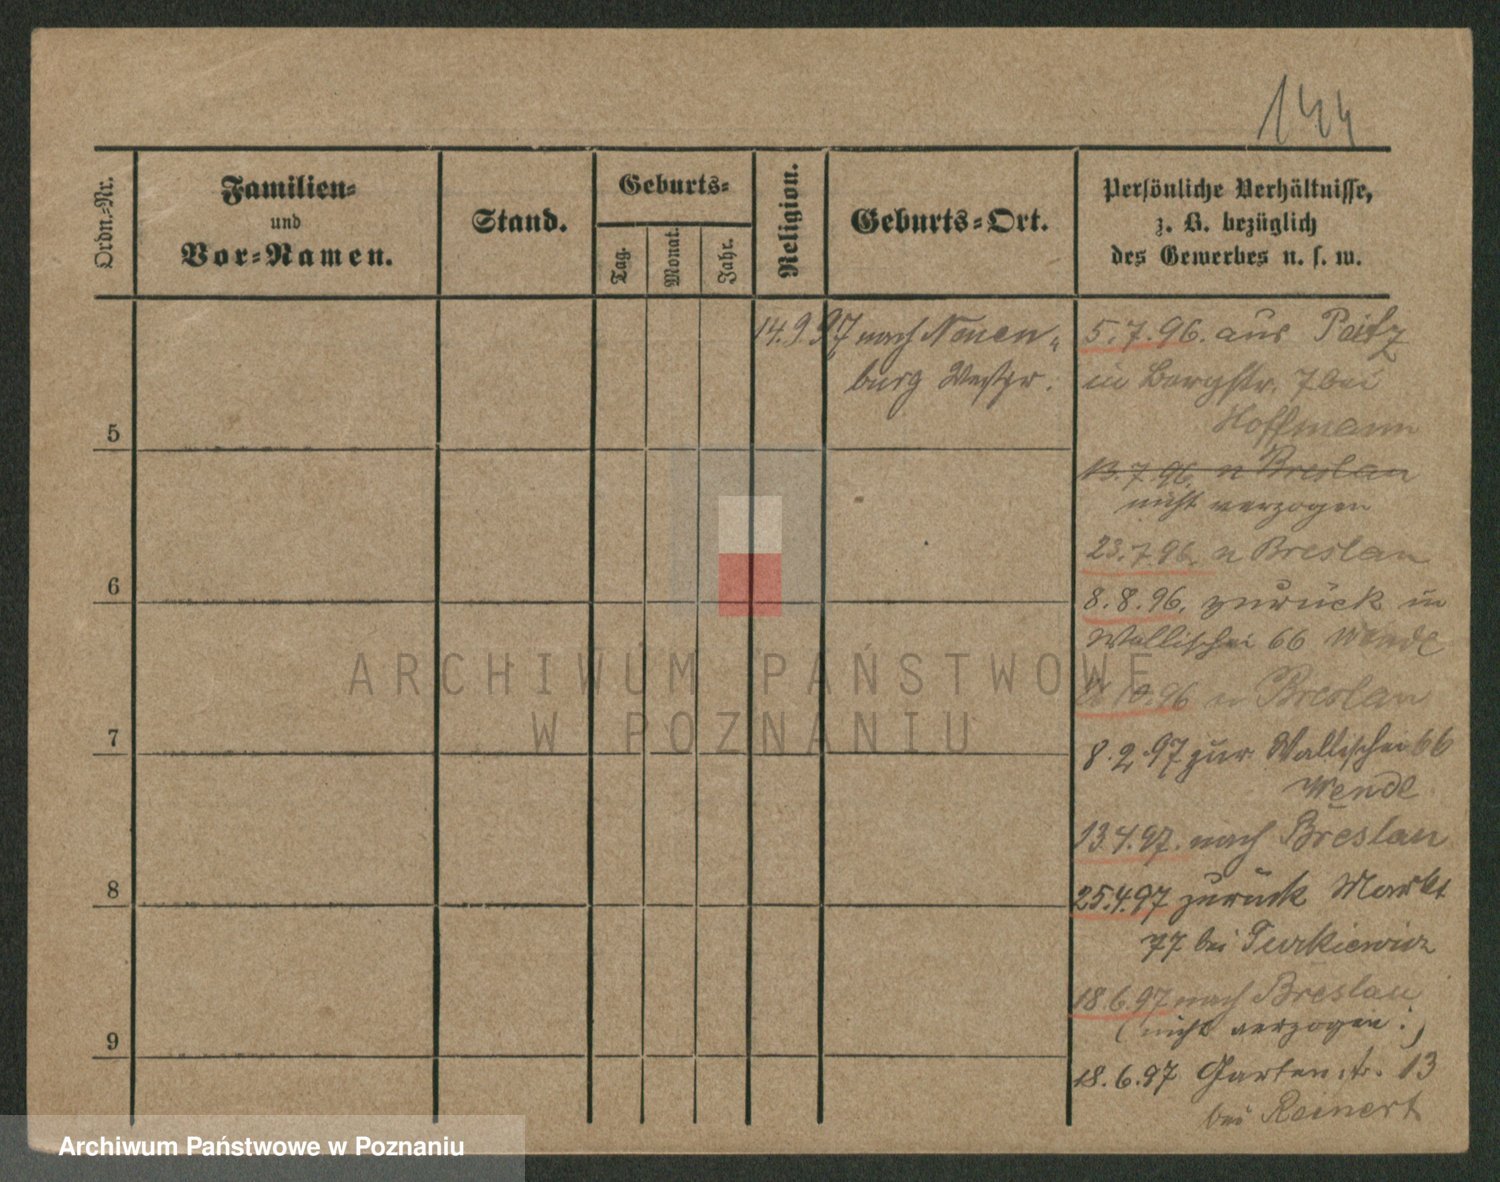 144
Ordn.-Nr.
Familien-
und
Vor-Namen.
Stand.
Geburts-
Tag.
Monat.
Jahr.
Religion.
Geburts-Ort.
Persönliche Verhältnisse,
z. B. bezüglich
des Gewerbes u. s. w.
14.9.97 nach Neuen-
burg Westpr.
5.7.96. aus Peitz
in Bergstr. 7 bei
Hoffmann
13.7.96. n Breslau
nicht verzogen
23.7.96. n Breslau
8.8.96. zurück in
Wallischei 66 Wendl
10.96 n Breslau
8.2.97 zur. Wallischei 66
Wendl
13.4.97. nach Breslau
25.4.97 zurück Markt
77 bei Turkiewicz
18.6.97 nach Breslau
(nicht verzogen.)
18.6.97 Gartenstr. 13
bei Reinert
5
6
7
8
9
ARCHIWUM PAŃSTWOWE
W POZNANIU
Archiwum Państwowe w Poznaniu